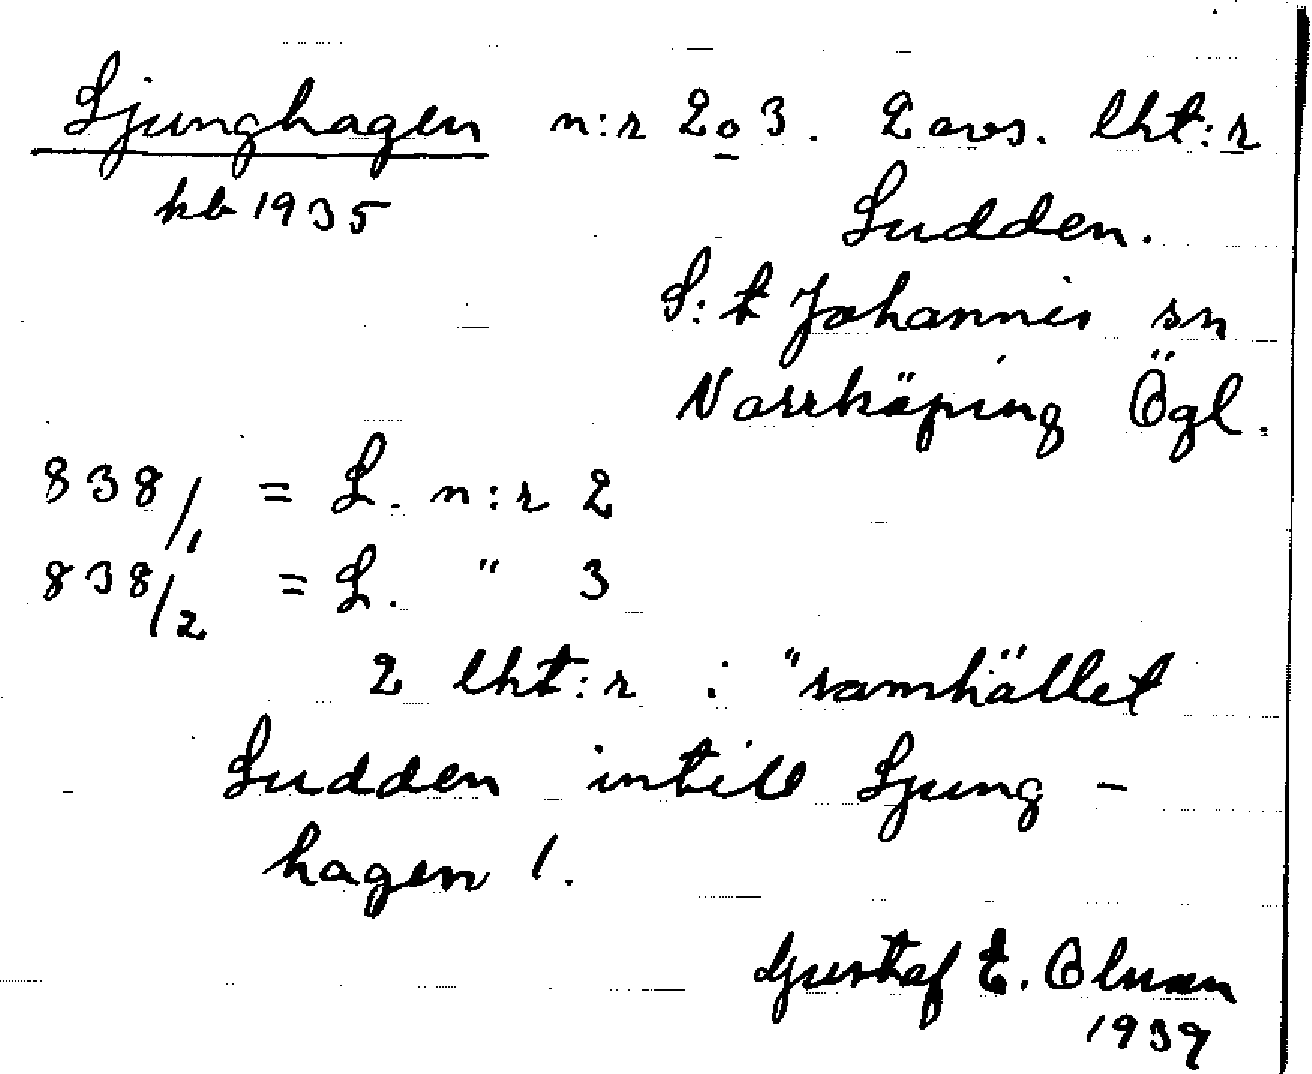 Ljunghagen n:r 2 o 3. 2 avs. lht:r
hb 1935
Sudden.
S:t Johannis sn
Norrköping Ögl.
838/1 = L. n:r 2
838/2 = L. " 3
2 lht:r i "samhället
Sudden intill Ljung-
hagen 1.
Gustaf E. Olsson
1939